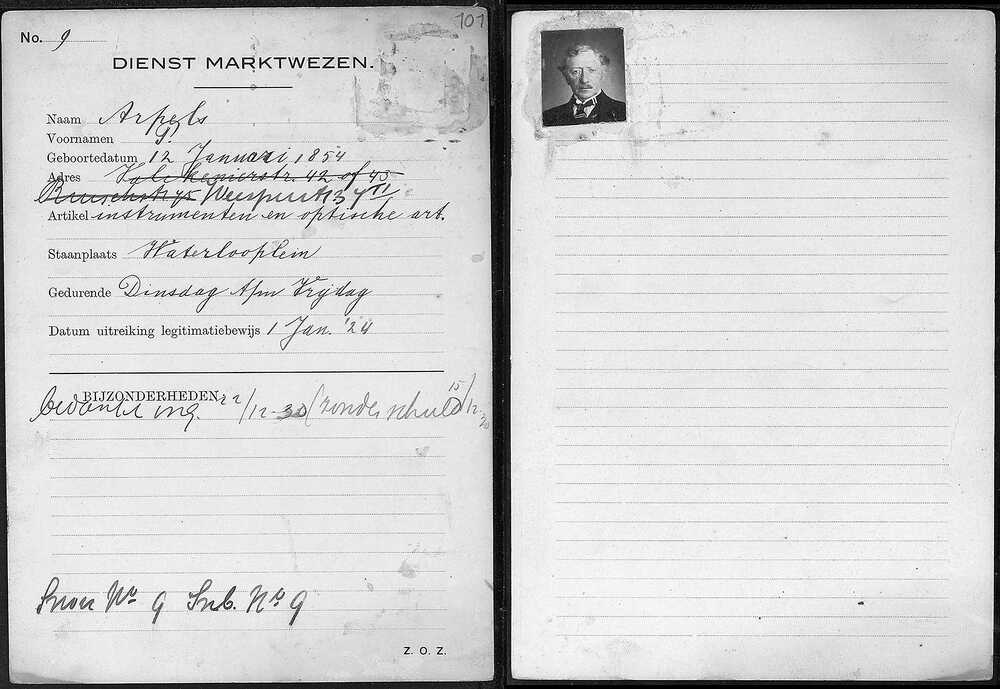 101
No. 9
DIENST MARKTWEZEN.
Naam Arpels
Voornamen S.
Geboortedatum 12 Januari 1854
Adres Valckenierstr. 42 of 45
45 Weesperstr 34 II
Artikel instrumenten en optische art.
Staanplaats Waterlooplein
Gedurende Dinsdag t/m Vrijdag
Datum uitreiking legitimatiebewijs 1 Jan. '24
BIJZONDERHEDEN.
bedankt ing. 22/12-30 (zonder schuld 15/12-30
No 9 No 9
Z. O. Z.